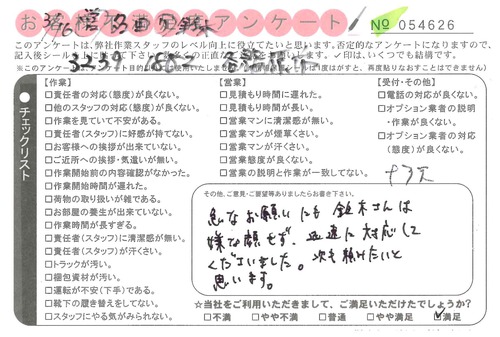 お アンケート
№ 054626
このアンケートは、弊社作業スタッフのレベル向上に役立てたいと思います。否定的なアンケートになりますので、
✓印は、いくつでも結構です。
チェックリスト
【作業】
□責任者の対応(態度)が良くない。
□他のスタッフの対応(態度)が良くない。
□作業を見ていて不安がある。
□責任者(スタッフ)に好感が持てない。
□お客様への挨拶が出来ていない。
□ご近所への挨拶・気遣いが無い。
□作業開始前の内容確認がなかった。
□作業開始時間が遅れた。
□荷物の取り扱いが雑である。
□お部屋の養生が出来ていない。
□作業時間が長すぎる。
□責任者(スタッフ)に清潔感が無い。
□責任者(スタッフ)が汗くさい。
□トラックが汚い。
□梱包資材が汚い。
□運転が不安(下手)である。
□靴下の履き替えをしてない。
□スタッフにやる気がみられない。
【営業】
□見積もり時間に遅れた。
□見積もり時間が長い。
□営業マンに清潔感が無い。
□営業マンが煙草くさい。
□営業マンが汗くさい。
□営業態度が良くない。
□営業の説明と作業が一致してない。
【受付・その他】
□電話の対応が良くない。
□オプション業者の説明
・作業が良くない。
□オプション業者の対応
(態度)が良くない。
その他、ご意見・ご要望等ありましたらお書き下さい。
急なお願いにも鈴木さんは
嫌な顔せず、迅速に対応して
くださいました。次も頼みたいと
思います。
☆当社をご利用いただきまして、ご満足いただけたでしょうか?
□不満 □やや不満 □普通 □やや満足 ☑満足